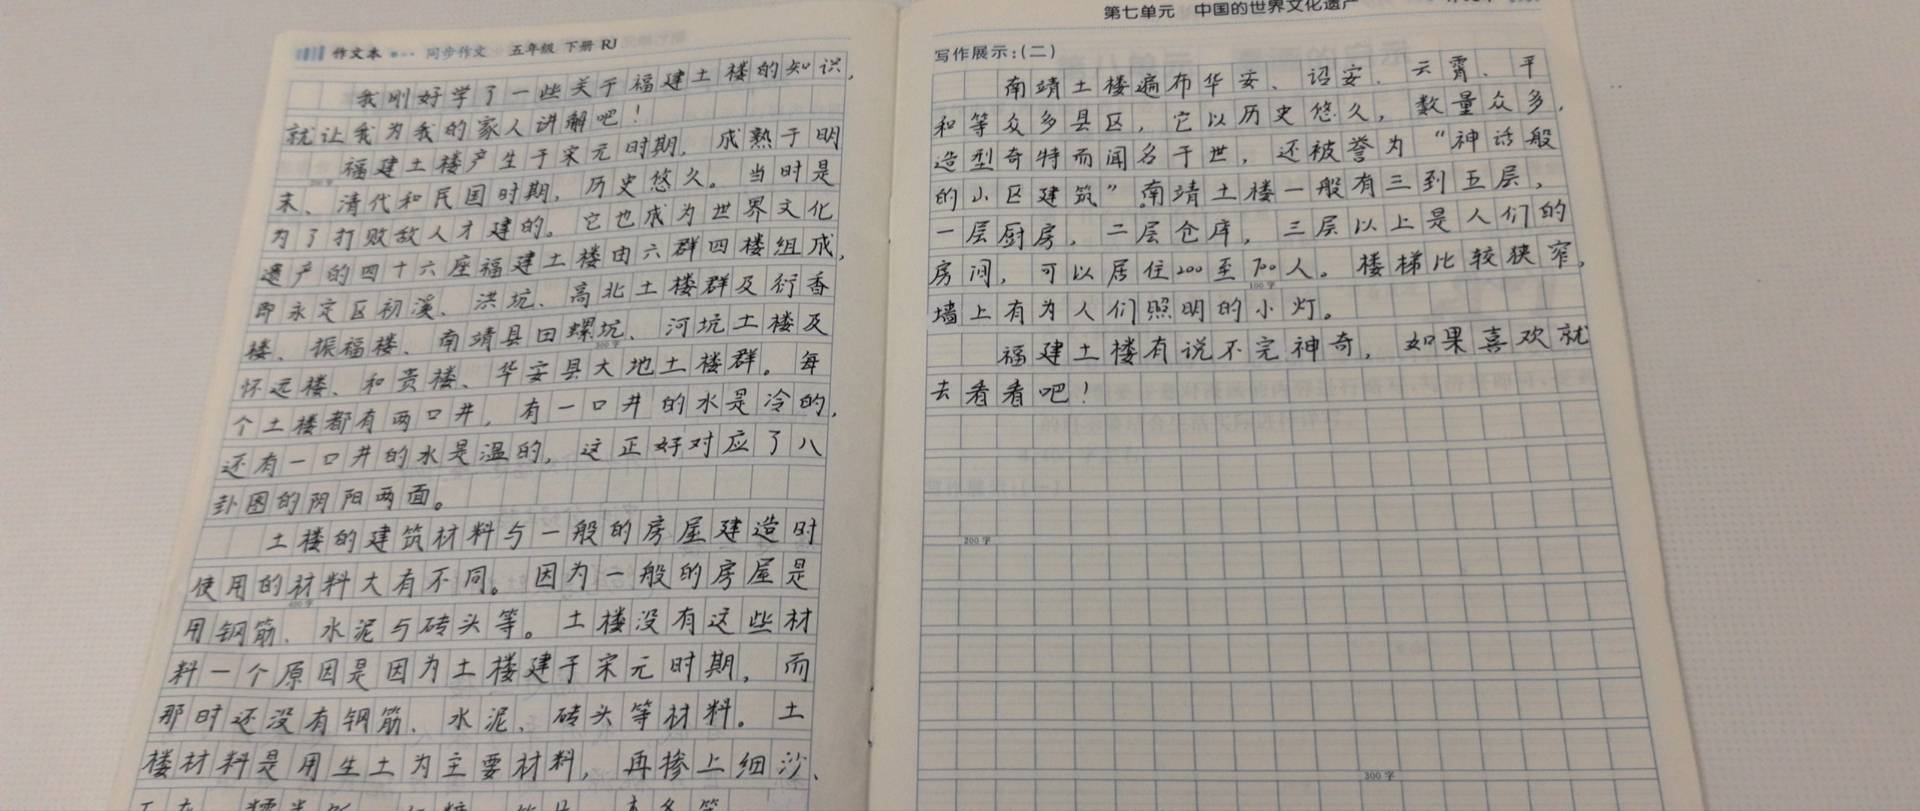 作文本 同步作文 五年级 下册 RJ
我刚好学了一些关于福建土楼的知识，
就让我为我的家人讲解吧！
福建土楼产生于宋元时期，成熟于明
末、清代和民国时期，历史悠久。当时是
为了打败敌人才建的。它也成为世界文化
遗产的四十六座福建土楼由六群四楼组成，
即永定区初溪、洪坑、高北土楼群及衍香
楼、振福楼、南靖县田螺坑、河坑土楼及
300字
怀远楼、和贵楼、华安县大地土楼群。每
个土楼都有两口井，有一口井的水是冷的，
还有一口井的水是温的，这正好对应了八
卦图的阴阳两面。
土楼的建筑材料与一般的房屋建造时
使用的材料大有不同。因为一般的房屋是
400字
用钢筋、水泥与砖头等。土楼没有这些材
料一个原因是因为土楼建于宋元时期，而
那时还没有钢筋、水泥、砖头等材料。土
楼材料是用生土为主要材料，再掺上细沙、
第七单元 中国的世界文化遗产
写作展示：（二）
南靖土楼遍布华安、诏安、云霄、平
和等众多县区，它以历史悠久，数量众多，
造型奇特而闻名于世，还被誉为“神话般
的小区建筑”南靖土楼一般有三到五层，
一层厨房，二层仓库，三层以上是人们的
房间，可以居住200至700人。楼梯比较狭窄，
100字
墙上有为人们照明的小灯。
福建土楼有说不完神奇，如果喜欢就
去看看吧！
200字
300字